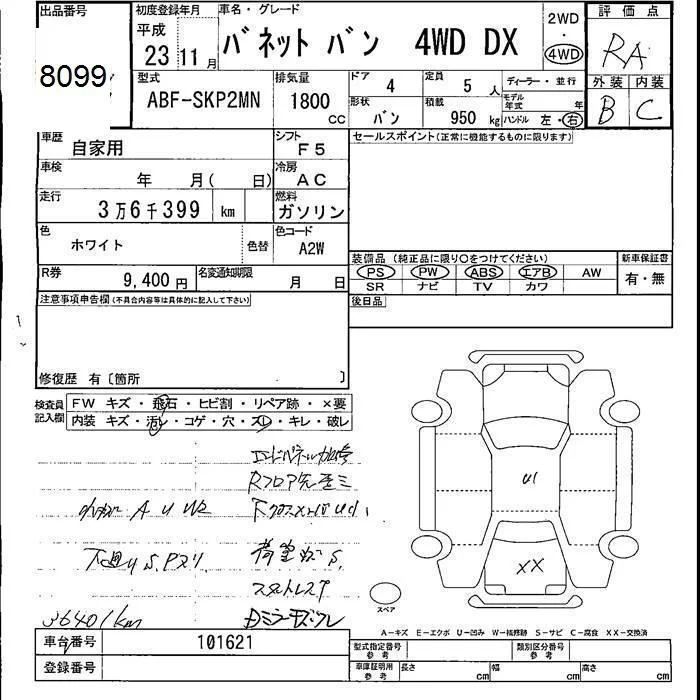 出品番号 初度登録年月 車名・グレード 評価点
平成 2WD
23 11月 バネット バン 4WD DX 4WD RA
8099 型式 排気量 ドア 定員 ディーラー・並行 外装 内装
ABF-SKP2MN 1800 CC 4 5人 モデル年式 年 B C
形状 バン 積載 950 kg ハンドル 左・右
車歴 シフト セールスポイント(正常に機能するものに限ります)
自家用 F5
車検 年 月( 日) 冷房 AC
走行 3万6千399 km 燃料 ガソリン
色 ホワイト 色替 色コード A2W
装備品 (純正品に限り○をつけてください) 新車保証書
R券 9,400円 名変通知期限 月 日 PS PW ABS エアB AW 有・無
SR ナビ TV カワ
注意事項申告欄(不具合内容等は具体的に記入して下さい) 後日品
修復歴 有〔箇所 〕
検査員記入欄 FW キズ・飛石・ヒビ割・リペア跡・×要
内装 キズ・汚レ・コゲ・穴・スレ・キレ・破レ
A U W2
S.
36401km
U1
XX
スペア
A-キズ E-エクボ U-凹み W-補修跡 S-サビ C-腐食 XX-交換済
車台番号 101621 型式指定番号 参考 類別区分番号 参考
登録番号 車庫証明用 参考 長さ cm 幅 cm 高さ cm